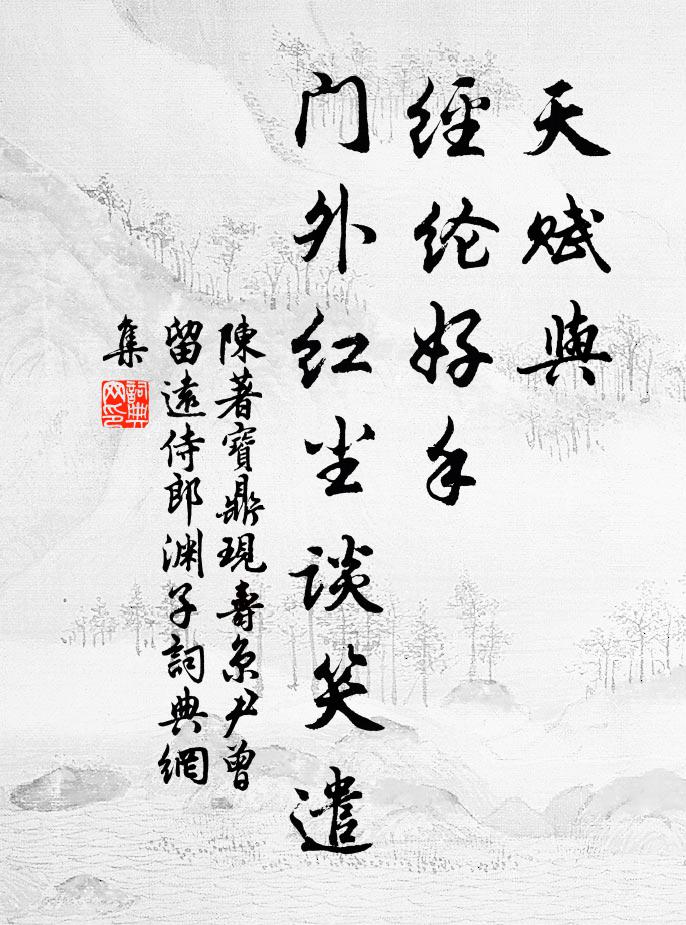 天赋與
經纶好手
门外红尘谈笑遣
陳著寶鼎現壽京尹曾
留遠侍郎渊子詞典網
集
詞典网印